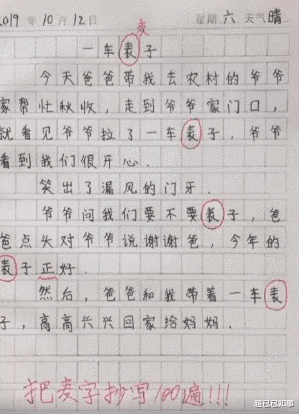 2019年10月12日 星期六 天气晴
麦
一车表子
今天爸爸带我去农村的爷爷
家帮忙秋收，走到爷爷家门口，
就看见爷爷拉了一车表子，爷爷
看到我们很开心.
笑出了漏风的门牙.
爷爷问我们要不要表子，爸
爸点头对爷爷说谢谢爸，今年的
表子正好.
然后，爸爸和我带着一车表
子，高高兴兴回家给妈妈.
把麦字抄写100遍!!!